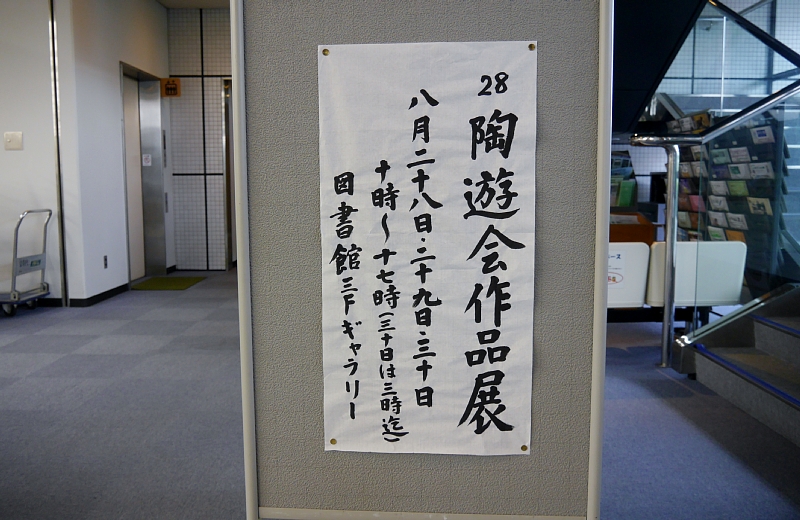 28
陶遊会作品展
八月二十八日・二十九日・三十日
十時～十七時(三十日は三時迄)
図書館三Fギャラリー